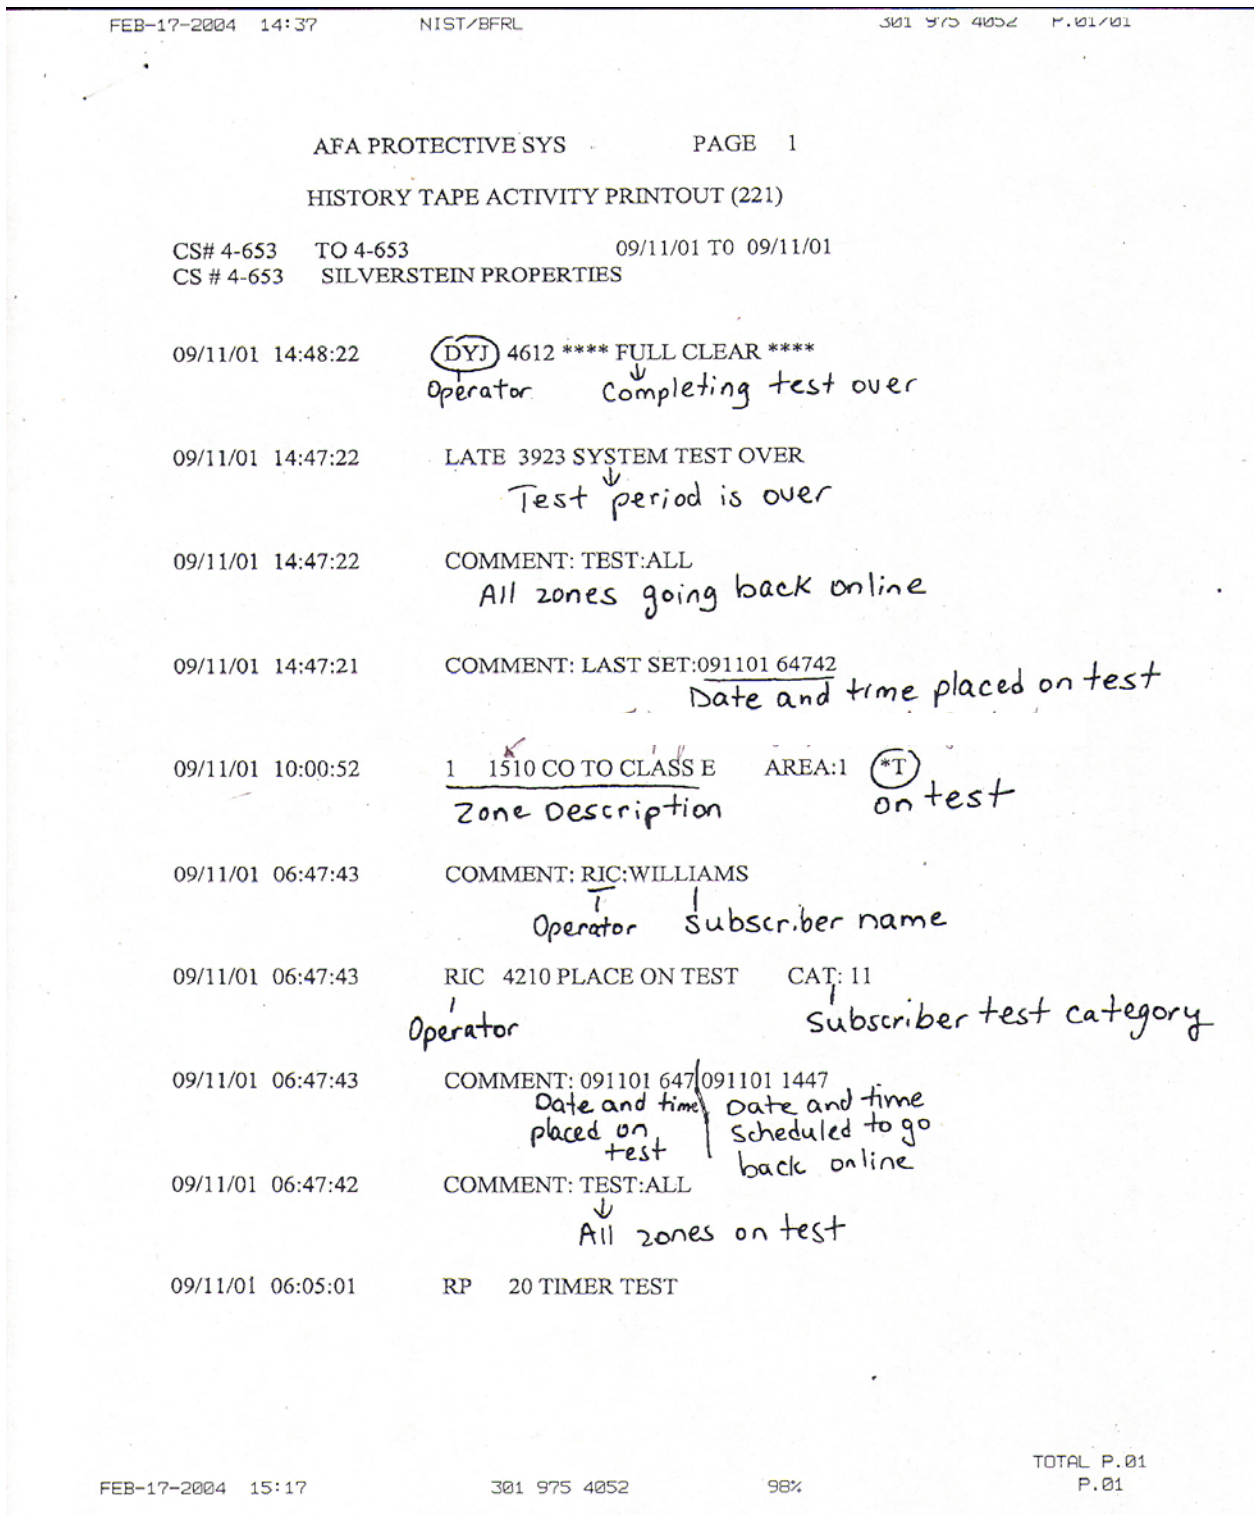 FEB-17-2004 14:37 NIST/BFRL 301 975 4052 P.01/01
AFA PROTECTIVE SYS PAGE 1
HISTORY TAPE ACTIVITY PRINTOUT (221)
CS# 4-653 TO 4-653 09/11/01 TO 09/11/01
CS # 4-653 SILVERSTEIN PROPERTIES
09/11/01 14:48:22 DYJ 4612 **** FULL CLEAR ****
Operator Completing test over
09/11/01 14:47:22 LATE 3923 SYSTEM TEST OVER
Test period is over
09/11/01 14:47:22 COMMENT: TEST:ALL
All zones going back online
09/11/01 14:47:21 COMMENT: LAST SET:091101 64742
Date and time placed on test
09/11/01 10:00:52 1 1510 CO TO CLASS E AREA:1 *T
Zone Description on test
09/11/01 06:47:43 COMMENT: RIC:WILLIAMS
Operator Subscriber name
09/11/01 06:47:43 RIC 4210 PLACE ON TEST CAT: 11
Operator Subscriber test category
09/11/01 06:47:43 COMMENT: 091101 647 091101 1447
Date and time Date and time
placed on scheduled to go
test back online
09/11/01 06:47:42 COMMENT: TEST:ALL
All zones on test
09/11/01 06:05:01 RP 20 TIMER TEST
TOTAL P.01
FEB-17-2004 15:17 301 975 4052 98% P.01